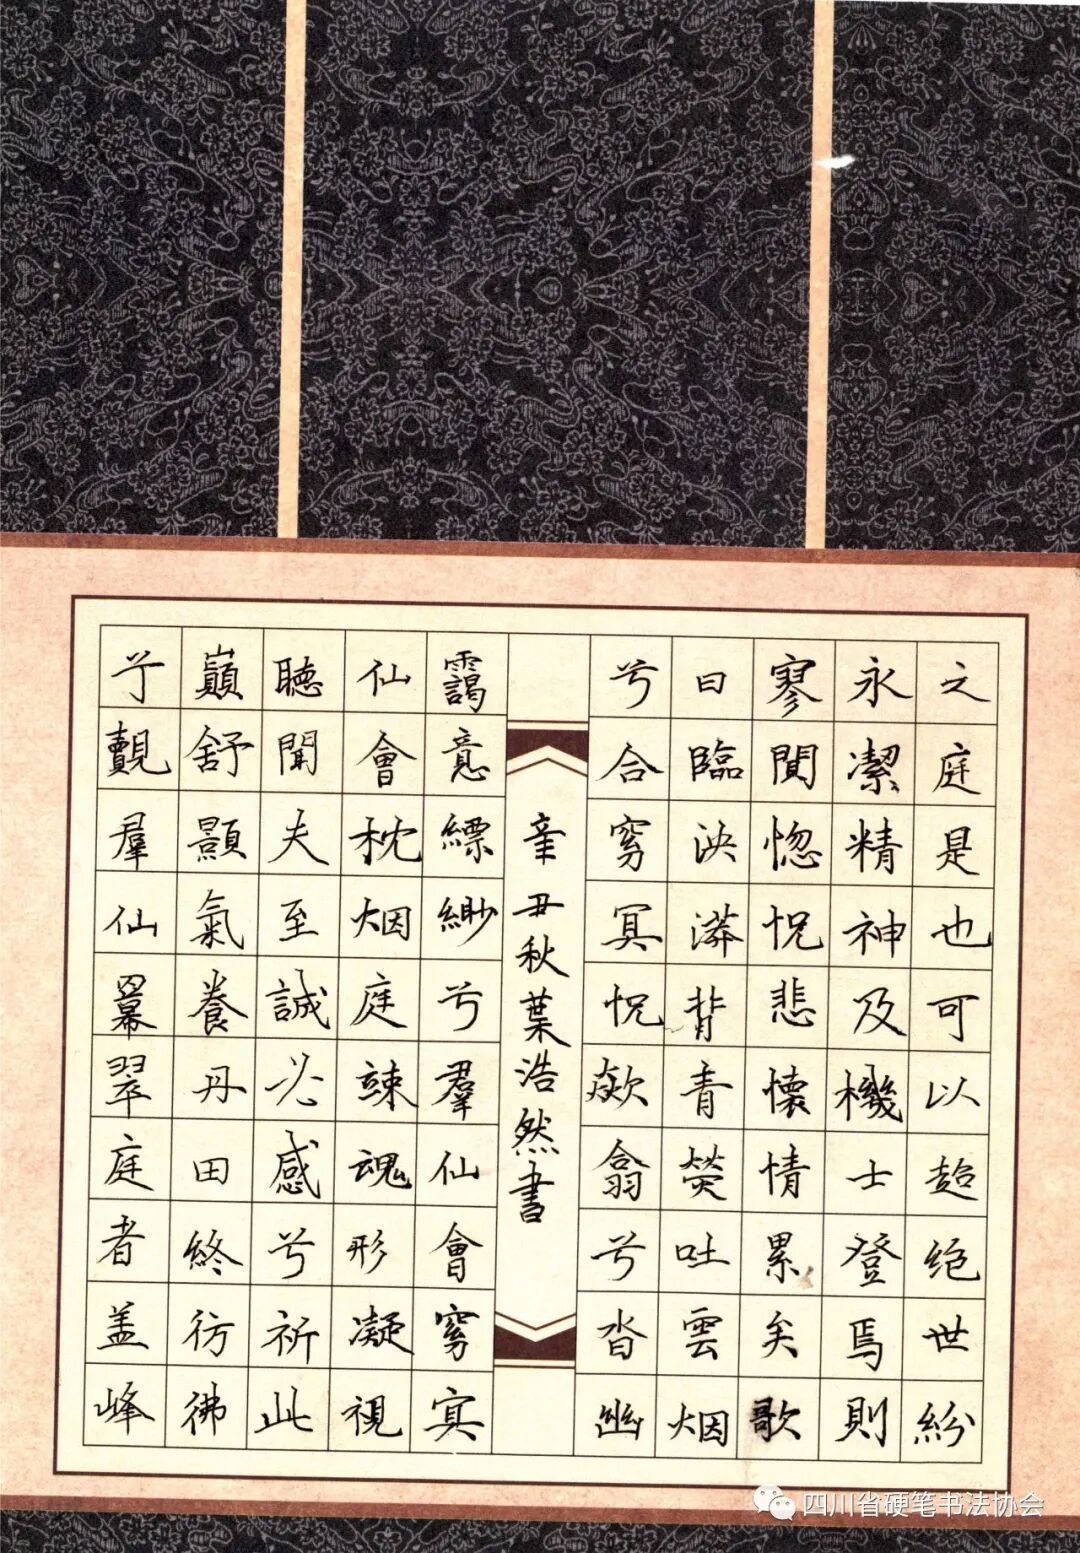 之庭是也可以超绝世紛
永潔精神及機士登焉則
寥閴惚怳悲懷情累矣歌
曰臨泱漭背青熒吐雲烟
兮合窅冥怳欻翕兮沓幽
辛丑秋葉浩然書
靄意縹緲兮羣仙會窅冥
仙會枕烟庭竦魂形凝視
聽聞夫至誠必感兮祈此
巔舒顥氣養丹田終彷彿
兮覿羣仙冪翠庭者盖峰
四川省硬笔书法协会